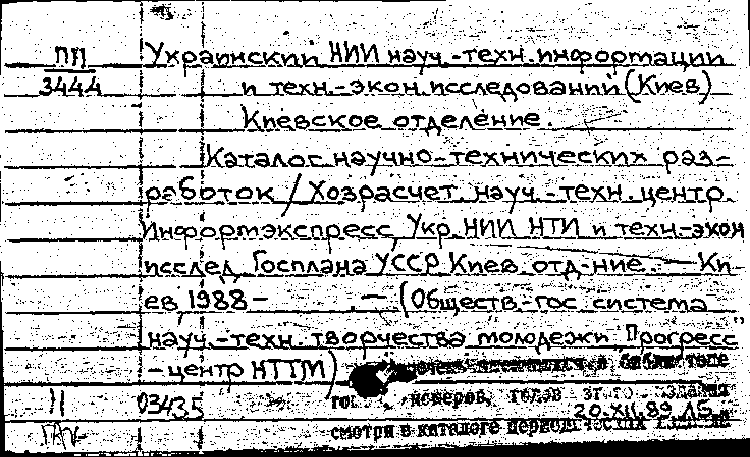 ПП Украинский НИИ науч.-техн. информации
3444 и техн.-экон. исследований (Киев)
Киевское отделение.
Каталог научно-технических раз-
работок / Хозрасчет. науч.-техн. центр
Информэкспресс, Укр. НИИ НТИ и техн.-экон
исслед. Госплана УССР Киев. отд-ние. — Ки-
ев, 1988 – . — (Обществ.-гос система
науч.-техн. творчества молодежи "Прогресс"
- центр НТТМ)
в библиотеке
11 03435 номеров, годов этого издания
20.XII.89
смотри в каталоге периодических изданий